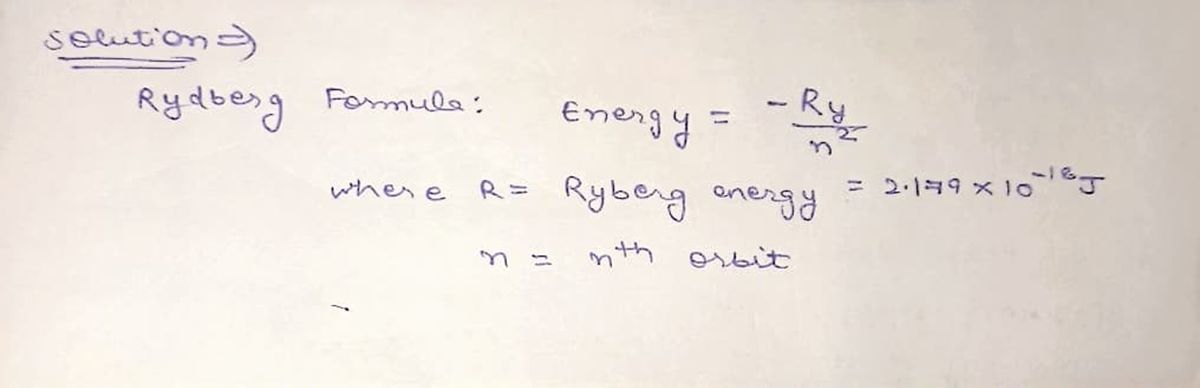 Solution ⇒
Rydberg Formula: Energy = -Ry/n²
where R = Ryberg energy = 2.179 × 10⁻¹⁸ J
n = nth orbit